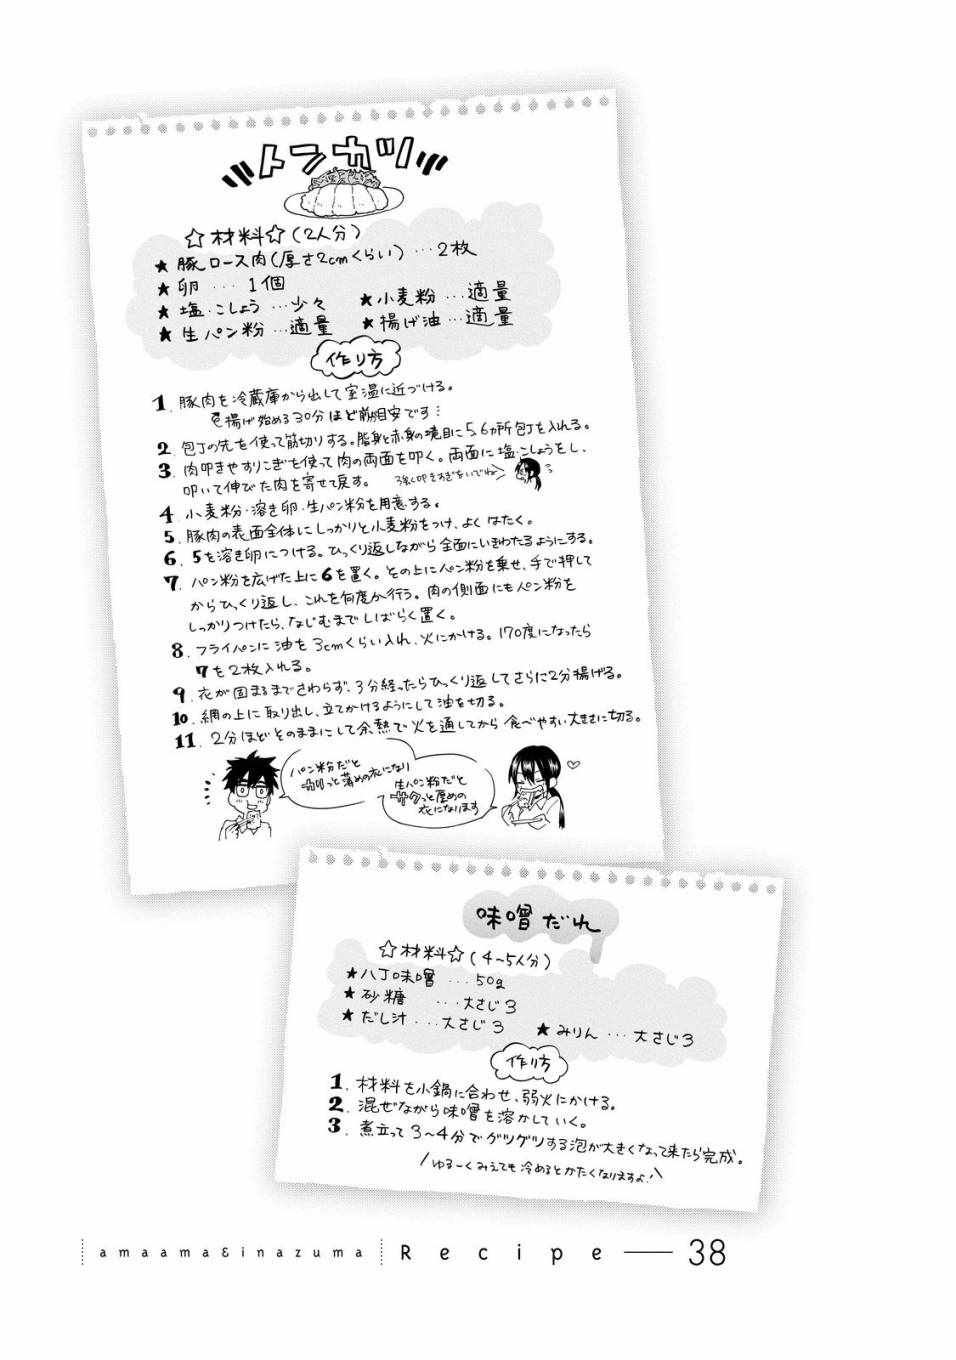 トンカツ
☆材料☆(2人分)
★豚ロース肉(厚さ2cmくらい)…2枚
★卵…1個
★塩・こしょう…少々 ★小麦粉…適量
★生パン粉…適量 ★揚げ油…適量
作り方
1. 豚肉を冷蔵庫から出して室温に近づける。
揚げ始める30分ほど前が目安です…
2. 包丁の先を使って筋切りする。脂身と赤身の境目に5,6ヵ所包丁を入れる。
3. 肉叩きやすりこぎを使って肉の両面を叩く。両面に塩・こしょうをし、
叩いて伸びた肉を寄せて戻す。 強く叩きすぎないでね
4. 小麦粉・溶き卵・生パン粉を用意する。
5. 豚肉の表面全体にしっかりと小麦粉をつけ、よくはたく。
6. 5を溶き卵につける。ひっくり返しながら全面にいきわたるようにする。
7. パン粉を広げた上に6を置く。その上にパン粉を乗せ、手で押して
からひっくり返し、これを何度か行う。肉の側面にもパン粉を
しっかりつけたら、なじむまでしばらく置く。
8. フライパンに油を3cmくらい入れ、火にかける。170度になったら
7を2枚入れる。
9. 衣が固まるまでさわらず、3分経ったらひっくり返してさらに2分揚げる。
10. 網の上に取り出し、立てかけるようにして油を切る。
11. 2分ほどそのままにして余熱で火を通してから食べやすい大きさに切る。
パン粉だと
カリっと薄めの衣になり
生パン粉だと
サクっと厚めの
衣になります
味噌だれ
☆材料☆(4~5人分)
★八丁味噌…50g
★砂糖…大さじ3
★だし汁…大さじ3 ★みりん…大さじ3
作り方
1. 材料を小鍋に合わせ、弱火にかける。
2. 混ぜながら味噌を溶かしていく。
3. 煮立って3~4分でグツグツする泡が大きくなって来たら完成。
ゆる~くみえても冷めるとかたくなりますよ!
amaama&inazuma Recipe 38